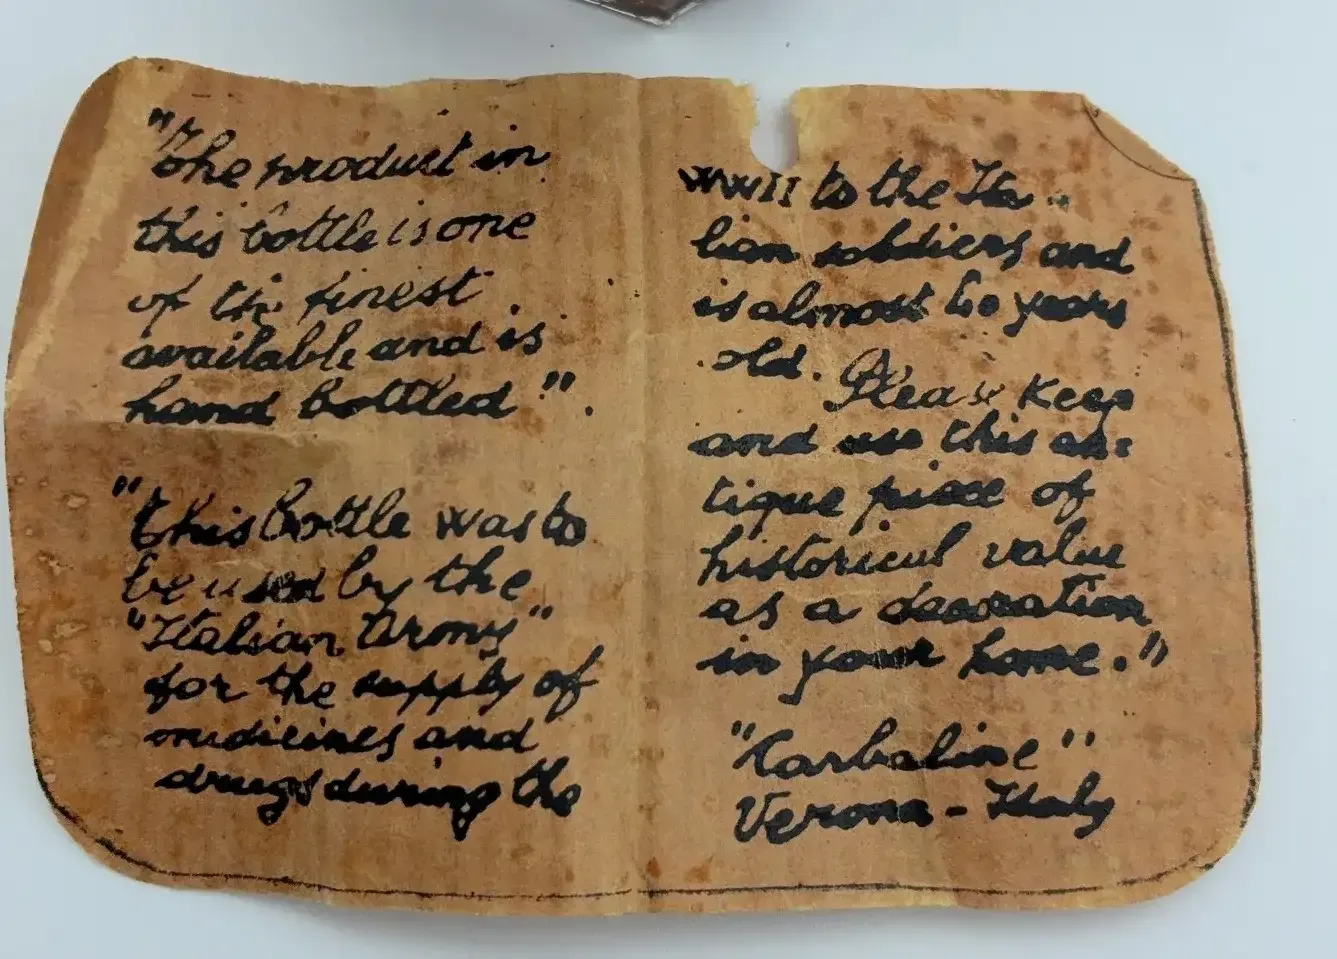 "The product in
this bottle is one
of the finest
available and is
hand bottled".
"This bottle was to
be used by the
"Italian Army"
for the supply of
medicines and
drugs during the
WWII to the Ita-
lian soldiers and
is almost 60 years
old. Please keep
and use this an-
tique piece of
historical value
as a decoration
in your home."
"Carbaline"
Verona - Italy